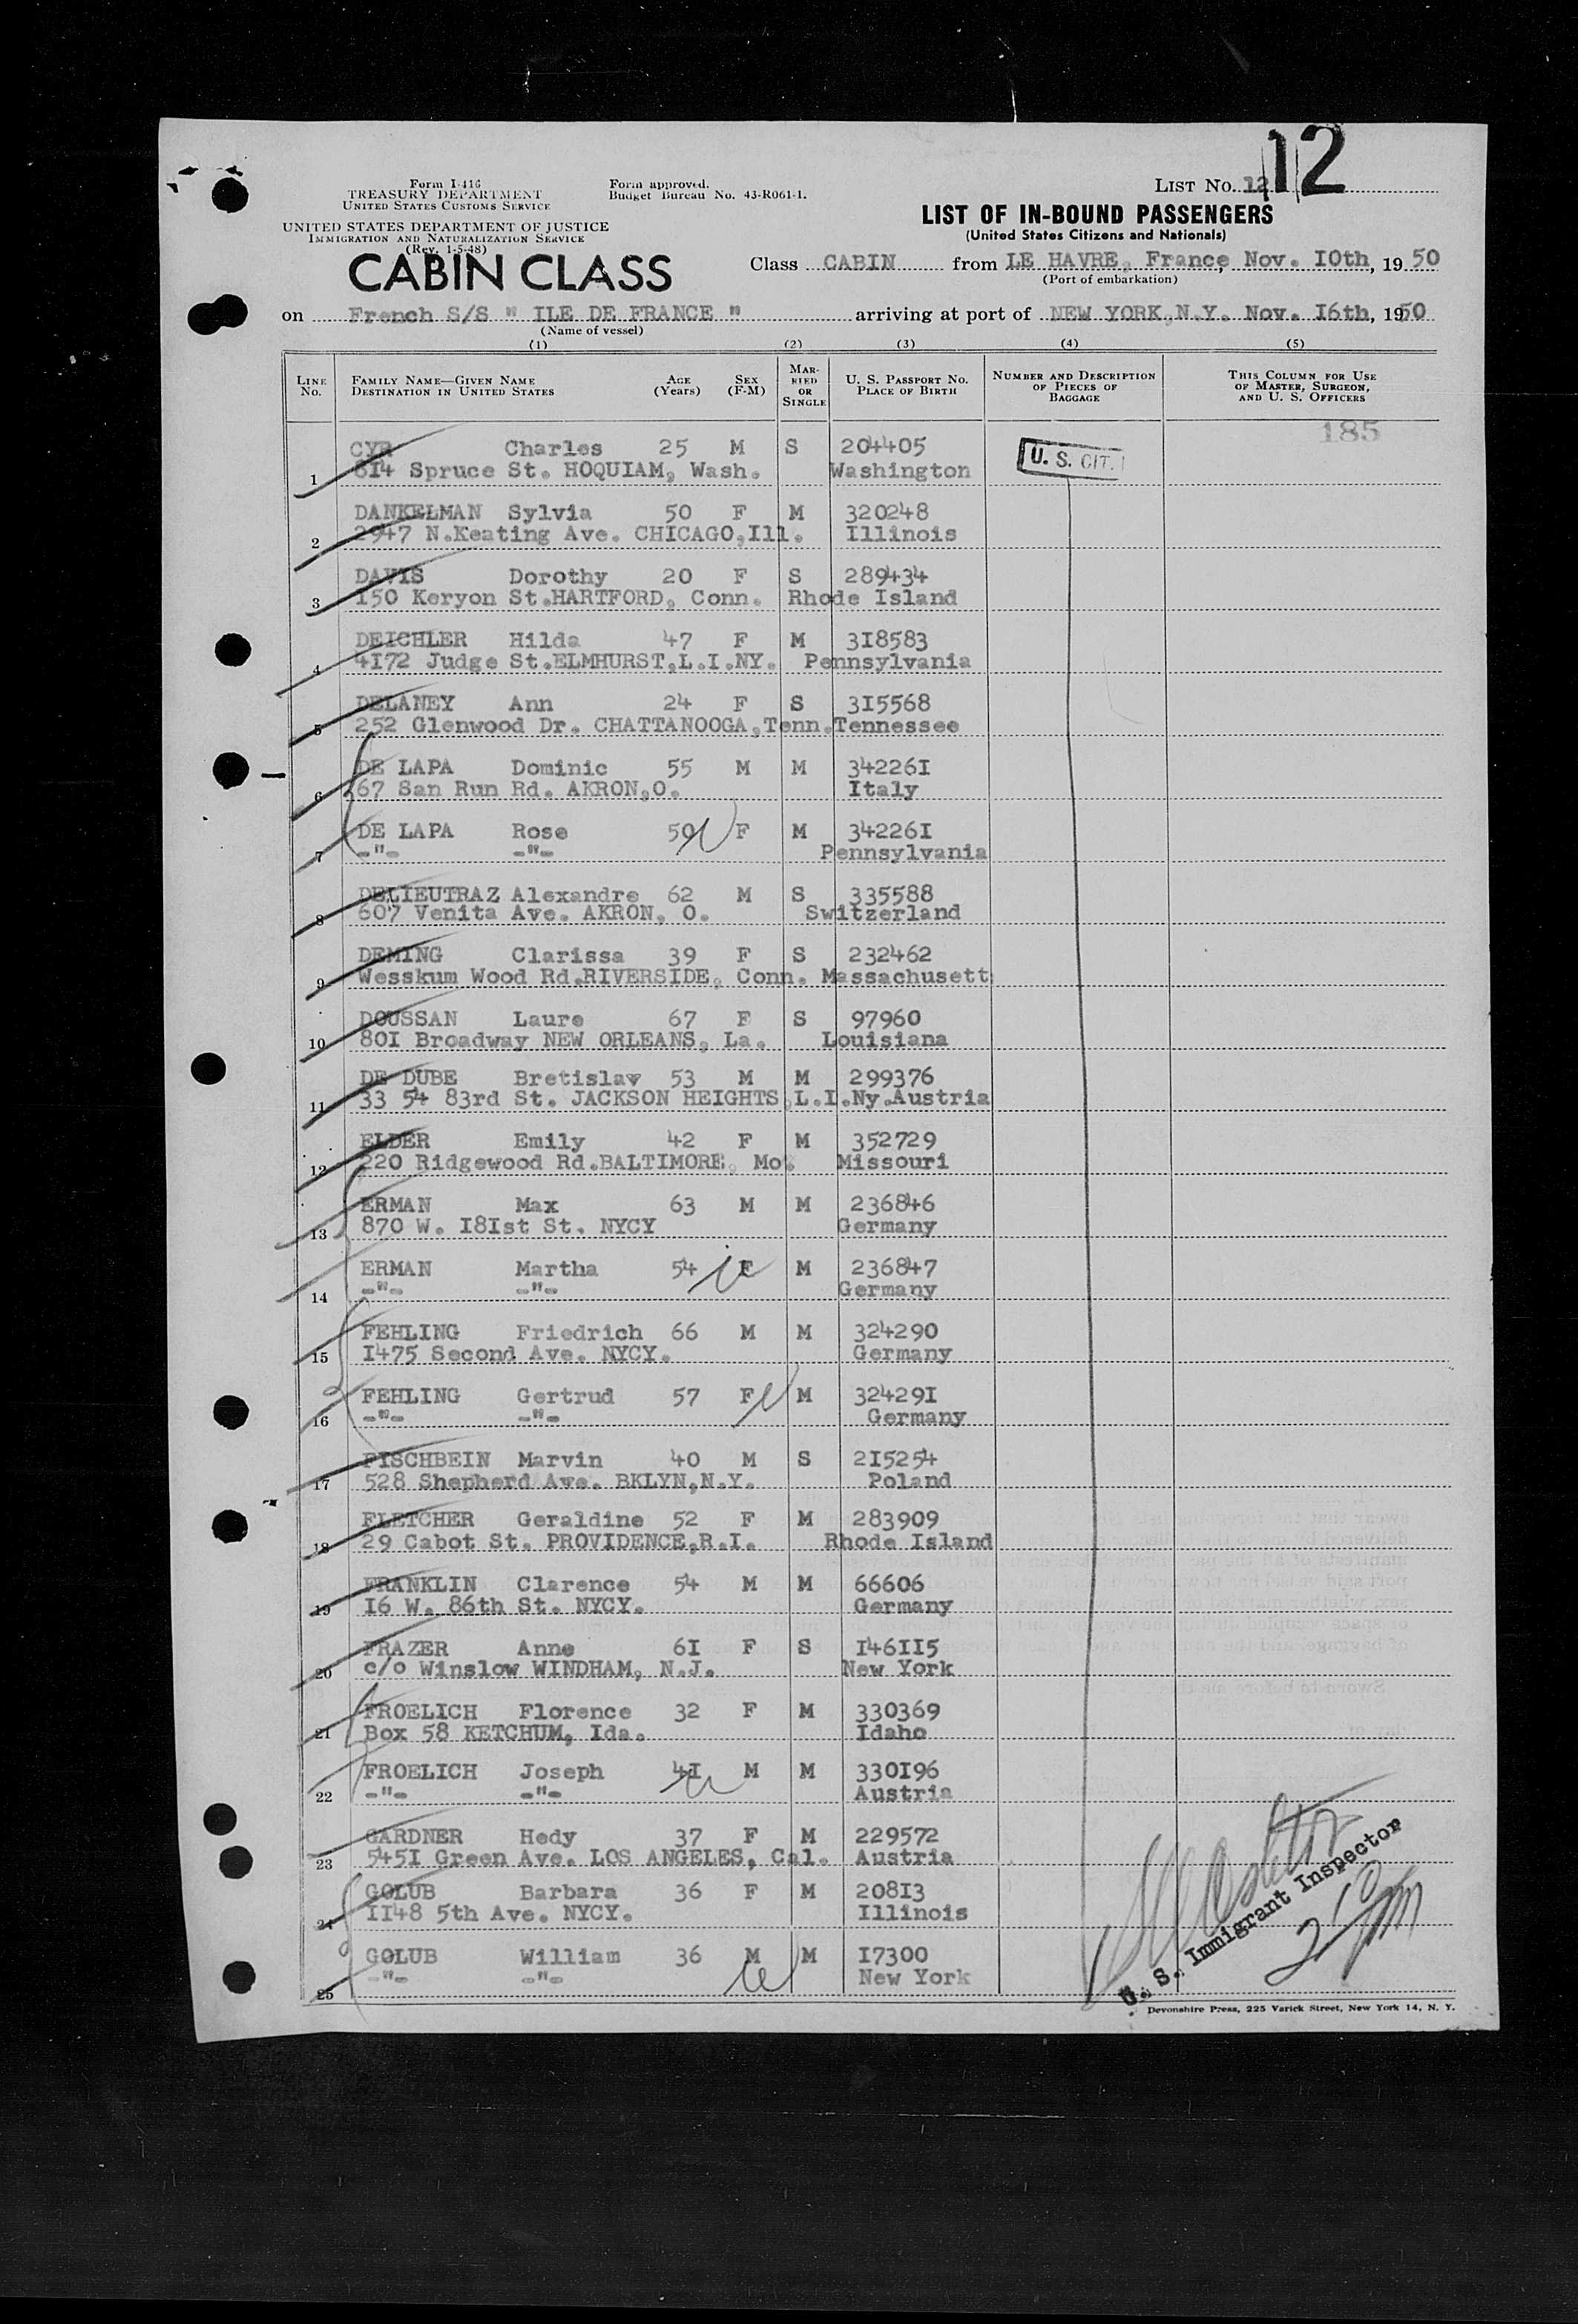 12
Form I-416
TREASURY DEPARTMENT
UNITED STATES CUSTOMS SERVICE
Form approved.
Budget Bureau No. 43-R061-1.
LIST No. 12
UNITED STATES DEPARTMENT OF JUSTICE
IMMIGRATION AND NATURALIZATION SERVICE
(Rev. 1-5-48)
LIST OF IN-BOUND PASSENGERS
(United States Citizens and Nationals)
CABIN CLASS
Class CABIN from LE HAVRE, France, Nov. I0th, 19 50
(Port of embarkation)
on French S/S " ILE DE FRANCE " arriving at port of NEW YORK,N.Y. Nov. I6th, 1950
(Name of vessel)
(1) (2) (3) (4) (5)
LINE No. FAMILY NAME—GIVEN NAME DESTINATION IN UNITED STATES AGE (Years) SEX (F-M) MARRIED OR SINGLE U. S. PASSPORT NO. PLACE OF BIRTH NUMBER AND DESCRIPTION OF PIECES OF BAGGAGE THIS COLUMN FOR USE OF MASTER, SURGEON, AND U. S. OFFICERS
185
CYR Charles 25 M S 204405
U. S. CIT.
1 814 Spruce St. HOQUIAM, Wash. Washington
DANKELMAN Sylvia 50 F M 320248
2 2947 N.Keating Ave. CHICAGO,Ill. Illinois
DAVIS Dorothy 20 F S 289434
3 I50 Keryon St.HARTFORD, Conn. Rhode Island
DEICHLER Hilda 47 F M 3I8583
4 4I72 Judge St.ELMHURST,L.I.NY. Pennsylvania
DELANEY Ann 24 F S 3I5568
5 252 Glenwood Dr. CHATTANOOGA,Tenn.Tennessee
DE LAPA Dominic 55 M M 34226I
6 67 San Run Rd. AKRON,O. Italy
DE LAPA Rose 50 F M 34226I
7 -"- -"- Pennsylvania
DELIEUTRAZ Alexandre 62 M S 335588
8 607 Venita Ave. AKRON, O. Switzerland
DEMING Clarissa 39 F S 232462
9 Wesskum Wood Rd.RIVERSIDE, Conn. Massachusett
DOUSSAN Laure 67 F S 97960
10 80I Broadway NEW ORLEANS, La. Louisiana
DE DUBE Bretislav 53 M M 299376
11 33 54 83rd St. JACKSON HEIGHTS,L.I.Ny.Austria
ELDER Emily 42 F M 352729
12 220 Ridgewood Rd.BALTIMORE, Mo. Missouri
ERMAN Max 63 M M 236846
13 870 W. I8Ist St. NYCY Germany
ERMAN Martha 54 F M 236847
14 -"- -"- Germany
FEHLING Friedrich 66 M M 324290
15 I475 Second Ave. NYCY. Germany
FEHLING Gertrud 57 F M 32429I
16 -"- -"- Germany
FISCHBEIN Marvin 40 M S 2I5254
17 528 Shepherd Ave. BKLYN,N.Y. Poland
FLETCHER Geraldine 52 F M 283909
18 29 Cabot St. PROVIDENCE,R.I. Rhode Island
FRANKLIN Clarence 54 M M 66606
19 I6 W. 86th St. NYCY. Germany
FRAZER Anne 6I F S I46II5
20 c/o Winslow WINDHAM, N.J. New York
FROELICH Florence 32 F M 330369
21 Box 58 KETCHUM, Ida. Idaho
FROELICH Joseph 4I M M 330I96
22 -"- -"- Austria
GARDNER Hedy 37 F M 229572
23 545I Green Ave. LOS ANGELES, Cal. Austria
GOLUB Barbara 36 F M 208I3
24 II48 5th Ave. NYCY. Illinois
GOLUB William 36 M M I7300
25 -"- -"- New York
U. S. Immigrant Inspector
Devonshire Press, 225 Varick Street, New York 14, N. Y.